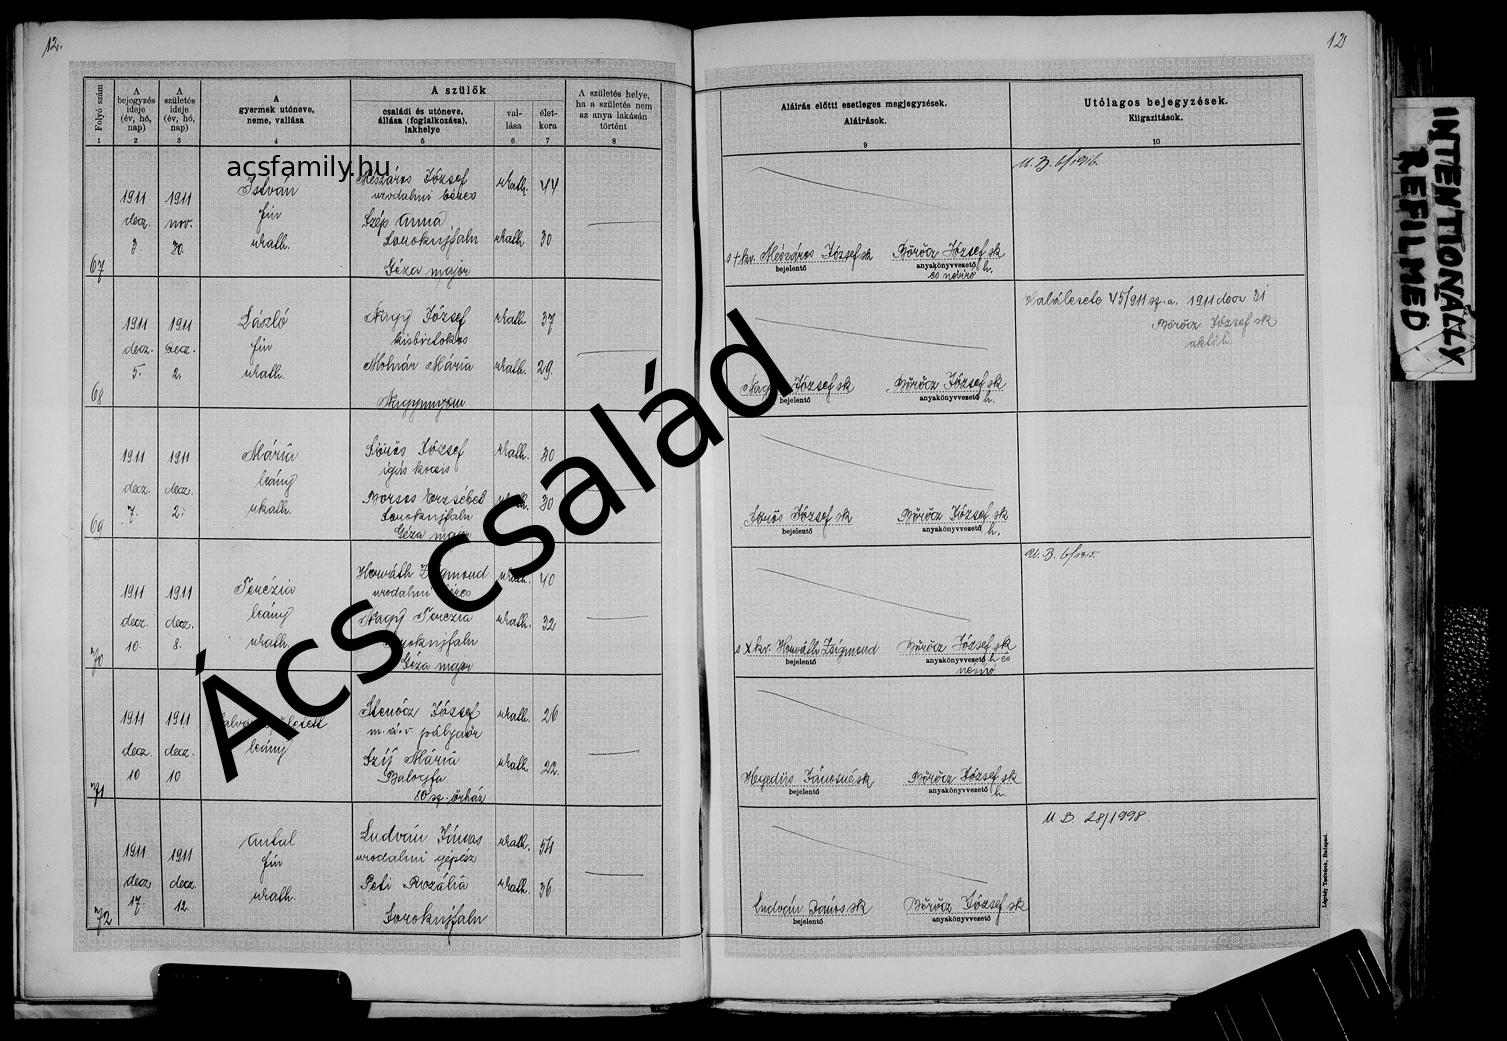 12.
12
Folyó szám
A bejegyzés ideje (év, hó, nap)
A születés ideje (év, hó, nap)
A gyermek utóneve, neme, vallása
A szülők
családi és utóneve, állása (foglalkozása), lakhelye
val-lása
élet-kora
A születés helye, ha a születés nem az anya lakásán történt
Aláírás előtti esetleges megjegyzések. Aláírások.
Utólagos bejegyzések. Kiigazítások.
1 2 3 4 5 6 7 8 9 10
acsfamily.hu
Ács család
INTENTIONALLY
REFILMED
67
1911 decz. 3.
1911 nov. 30.
István
fiú
rkath.
Mészáros József rkath. 44
uradalmi béres
Szép Anna
Sorokujfalu rkath 30
Géza major
s+kv. Mészáros József sk
bejelentő
Böröcz József sk
anyakönyvvezető h.
és névíró
68
1911 decz. 5.
1911 decz. 2.
László
fiú
rkath.
Nagy József rkath. 37
kisbirtokos
Molnár Mária rkath. 29
Nagy József sk
bejelentő
Böröcz József sk
anyakönyvvezető h.
Haláleset 45/911 sz. a. 1911 decz 31
Böröcz József sk
69
1911 decz. 7.
1911 decz. 2.
Mária
leány
rkath.
Sörös József rkath. 30
igás kocsis
Borsos Erzsébet 30
Sorokujfalu
Géza major
Sörös József sk
bejelentő
Böröcz József sk
anyakönyvvezető h.
70
1911 decz. 10.
1911 decz. 8.
Terézia
leány
rkath.
Horváth Zsigmond rkath. 40
uradalmi béres
Nagy Terézia rkath. 32
Sorokujfalu
Géza major
s x kv. Horváth Zsigmond
bejelentő
Böröcz József sk
anyakönyvvezető h és
névíró
71
1911 decz. 10
1911 decz. 10
halva született
leány
József rkath. 26
m. á. v pályaőr
Szíj Mária rkath. 22.
Balogfa
80 sz. őrház
Hegedüs Jánosné sk
bejelentő
Böröcz József sk
anyakönyvvezető h.
72
1911 decz. 17.
1911 decz. 12.
Antal
fiú
rkath.
Ludván János rkath. 54
uradalmi gépész
Peti Rozália rkath. 36.
Sorokujfalu
Ludván János sk
bejelentő
Böröcz József sk
anyakönyvvezető
U B. 28/1998.
Légrády Testvérek, Budapest.